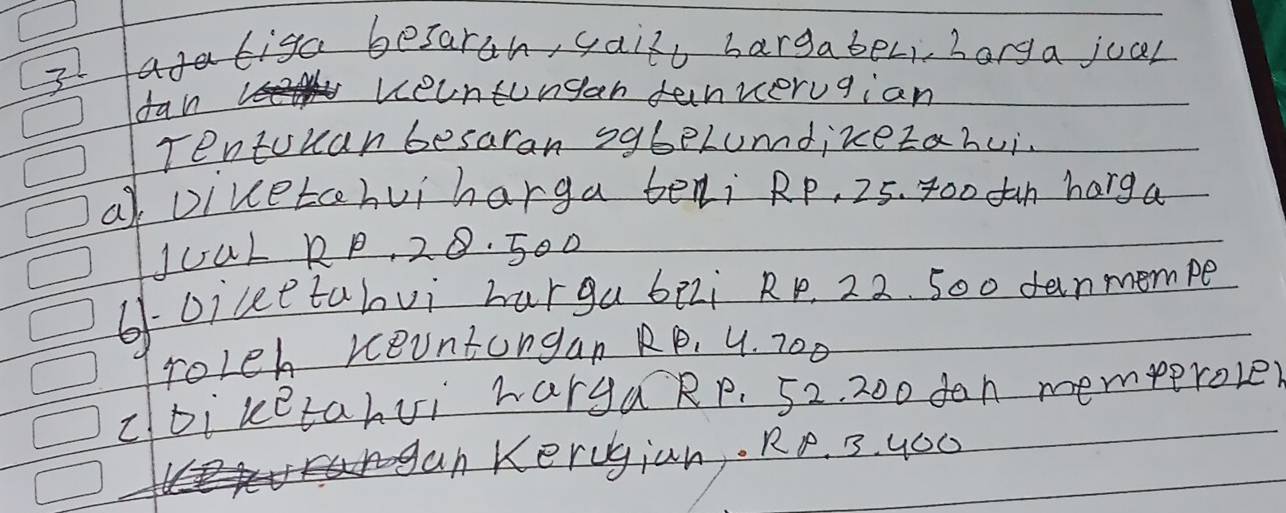 3. ada tiga besaran, yaitu harga beli, harga jual
dan keuntungan dan kerugian
Tentukan besaran yg belum diketahui.
a). Diketahui harga beli Rp. 25.700 dan harga
jual Rp. 28.500
b). Diketahui harga beli Rp. 22.500 dan mempe
roleh keuntungan Rp. 4.700
c) Diketahui harga Rp. 52.200 dan memperoleh
kerugian, . Rp. 3.400